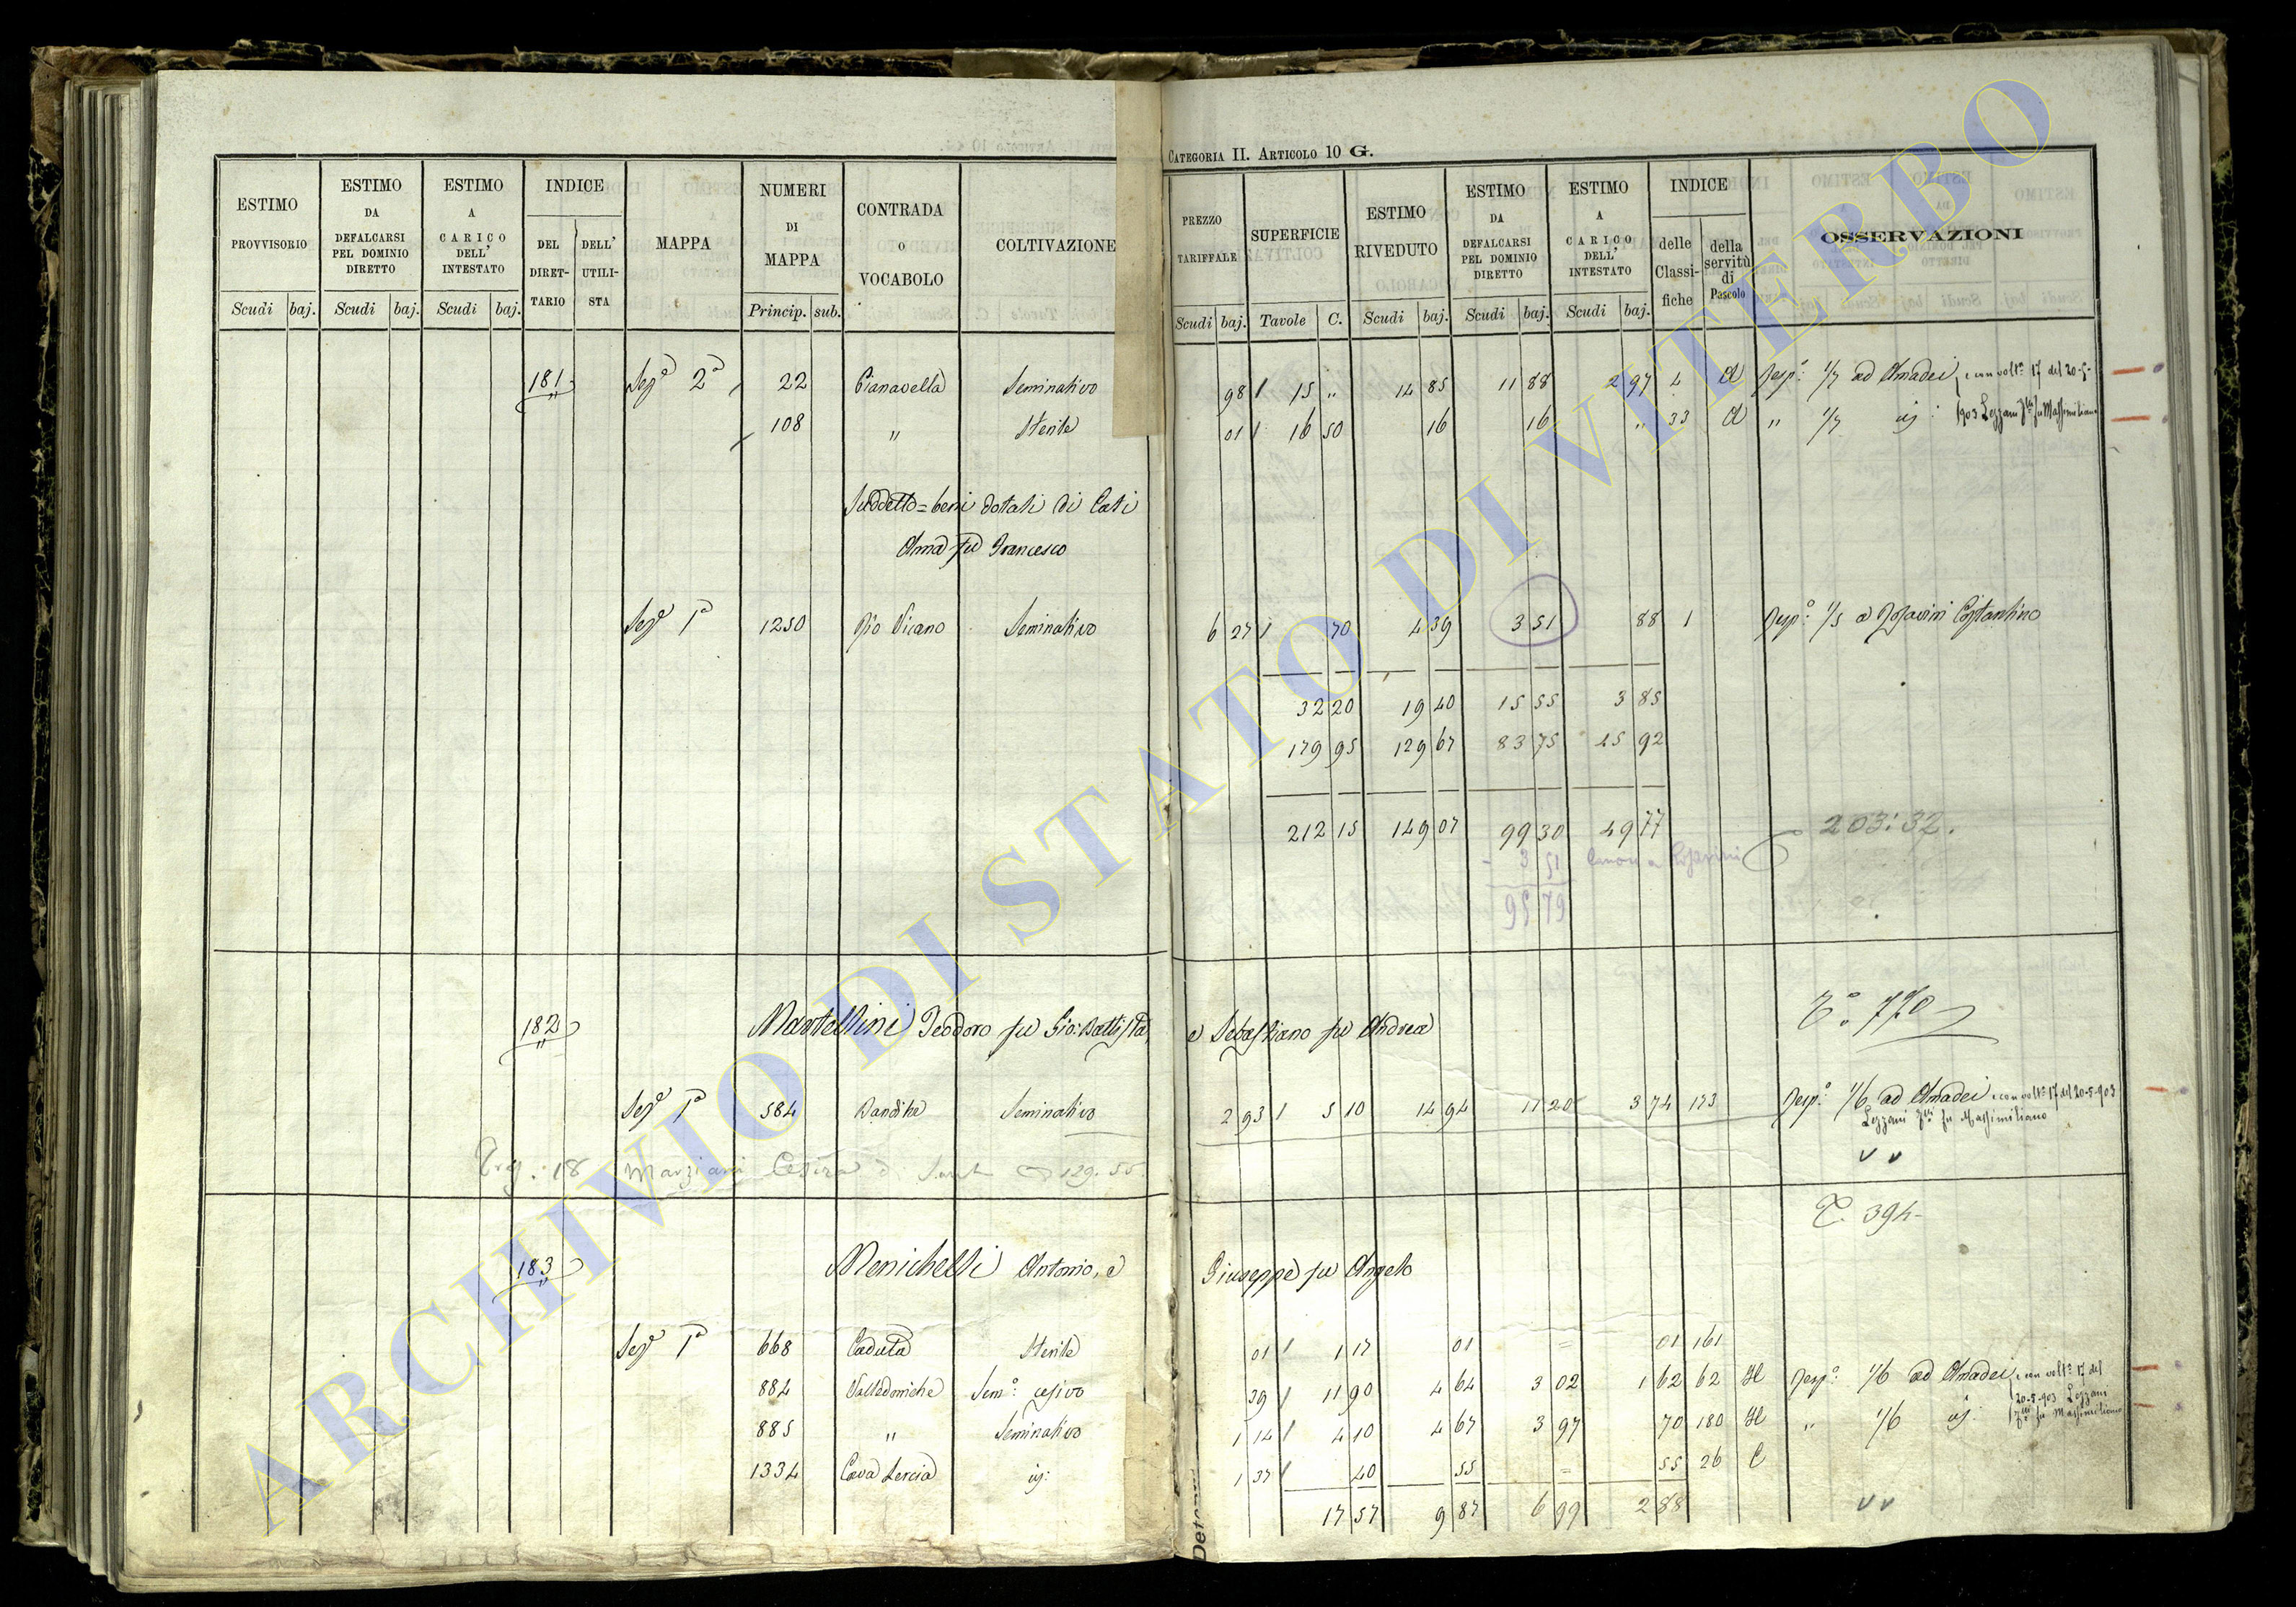 CATEGORIA II. ARTICOLO 10 G.
ESTIMO PROVVISORIO Scudi baj.
ESTIMO DA DEFALCARSI PEL DOMINIO DIRETTO Scudi baj.
ESTIMO A CARICO DELL' INTESTATO Scudi baj.
INDICE DEL DIRET-TARIO DELL' UTILI-STA
MAPPA
NUMERI DI MAPPA Princip. sub.
CONTRADA O VOCABOLO
COLTIVAZIONE
PREZZO TARIFFALE Scudi baj.
SUPERFICIE Tavole C.
ESTIMO RIVEDUTO Scudi baj.
ESTIMO DA DEFALCARSI PEL DOMINIO DIRETTO Scudi baj.
ESTIMO A CARICO DELL' INTESTATO Scudi baj.
INDICE delle Classi-fiche della servitù di Pascolo
OSSERVAZIONI
181 Sezᵉ 2ᵃ 22 Pianavella Seminativo 98 15 " 14 85 11 88 2 97 4 A Resp: 1/7 ad Amadei, e con voltᵃ 17 del 20-5-
108 " Sterile 01 16 50 16 16 " 33 A " 1/7 iį: 903 Lezzani Fˡˡⁱ fu Massimiliano
Suddetto = beni dotali di Cati
Anna fu Francesco
Sezᵉ 1ᵃ 1250 Rio Vicano Seminativo 6 27 70 4 39 3 51 88 1 Resp: 1/5 a Costantino
32 20 19 40 15 55 3 85
179 95 129 67 83 75 45 92
212 15 149 07 99 30 49 77 203:32.
- 3 51 Canone a
95 79
182 Martellini Teodoro fu Gio: Battista, e Sebastiano fu Andrea Tᵒ 770
Sezᵉ 1ᵃ 584 Bandite Seminativo 2 93 5 10 14 94 11 20 3 74 173 Resp: 1/6 ad Amadei e con voltᵃ 17 del 20-5-903
Lezzani Fˡˡⁱ fu Massimiliano
v v
18 Marziani Cesira 129.55
T. 394-
183 Menichelli Antonio, e Giuseppe fu Angelo
Sezᵉ 1ᵃ 668 Caduta Sterile 01 1 17 01 = 01 161
884 Valledoniche Semᵒ cesivo 39 11 90 4 64 3 02 1 62 62 H Resp: 1/6 ad Amadei, e con voltᵃ 17 del
20-5-903 Lezzani
885 " Seminativo 1 14 4 10 4 67 3 97 70 180 H " 1/6 iį: Fˡˡⁱ fu Massimiliano
1334 Cava Lercia iį: 1 37 40 55 = 55 26 C
17 57 9 87 6 99 2 88 v v
ARCHIVIO DI STATO DI VITERBO